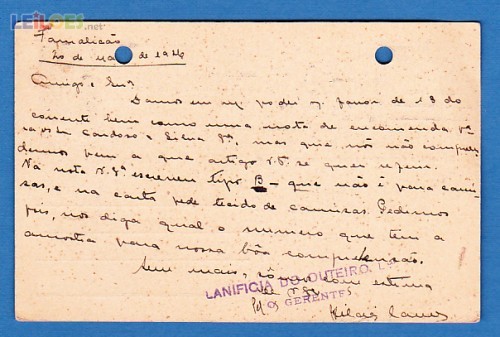 LEILOES.net
Famalicão
20 de de 1946
Amigo e Snr
Damos em poder favor de 13 do
corrente bem como uma nota de encomenda
Cardoso e mas que nós não compreen
demos bem a que artigo V.S. se quer
Na nota V. Sª escrevem tipo B - que não é para cami
sas, e na carta pede tecido de camisas. Pedimos
pois, nos diga qual o numero que tem a
amostra para nossa bôa compreensão.
Sem mais, com estima
LANIFICIA DO OUTEIRO, L.
de V. Sª
OS GERENTES